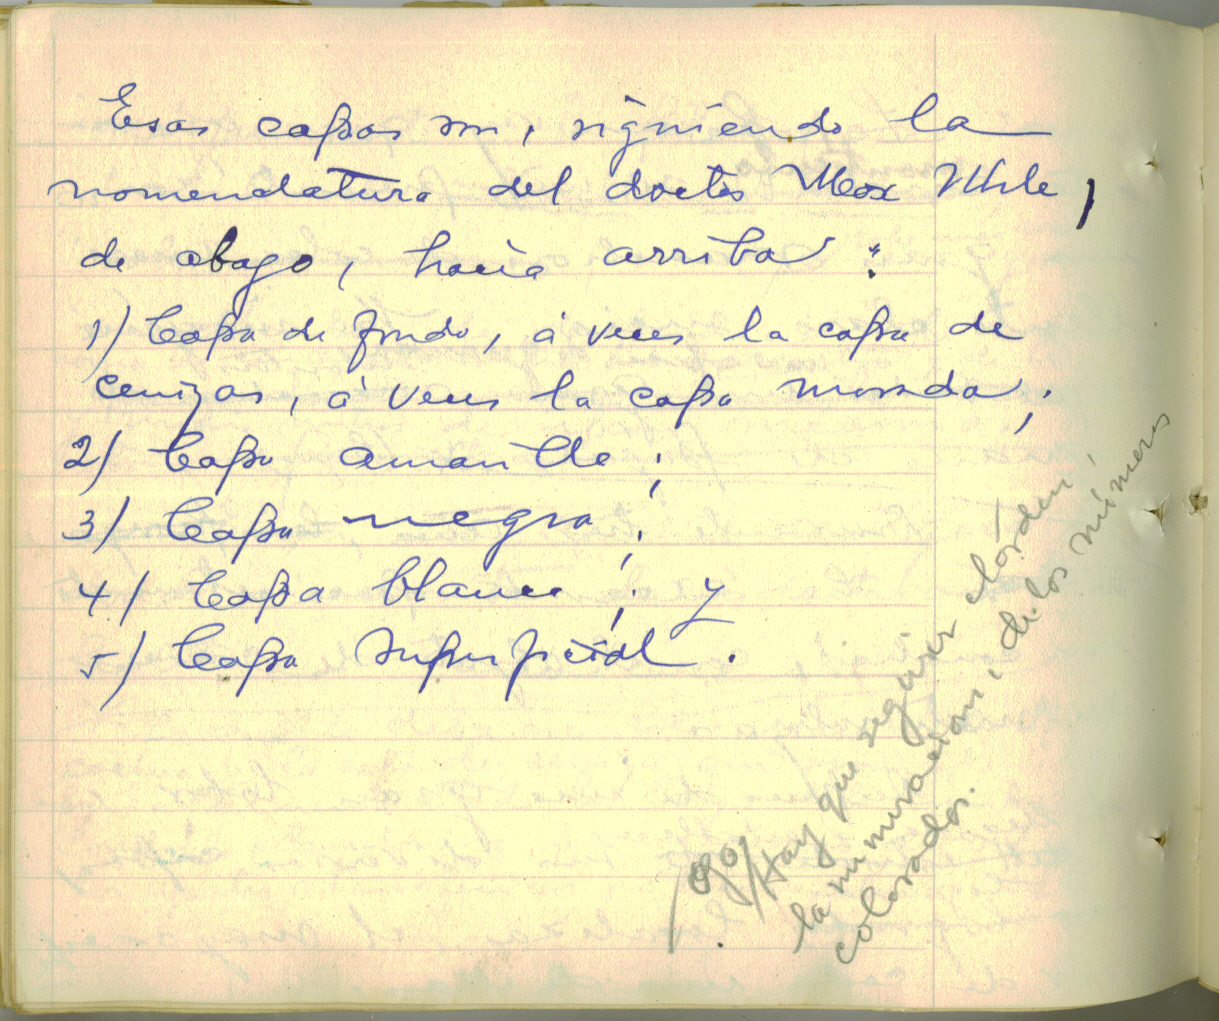 Esas capas son, siguiendo la
nomenclatura del doctor Max Uhle,
de abajo, hacia arriba:
1) Capa de fondo, á veces la capa de
cenizas, á veces la capa morada;
2) Capa amarilla;
3) Capa negra;
4) Capa blanca; y
5) Capa superficial.
Hay que seguir el órden
la numeracion, de los números
colorados.